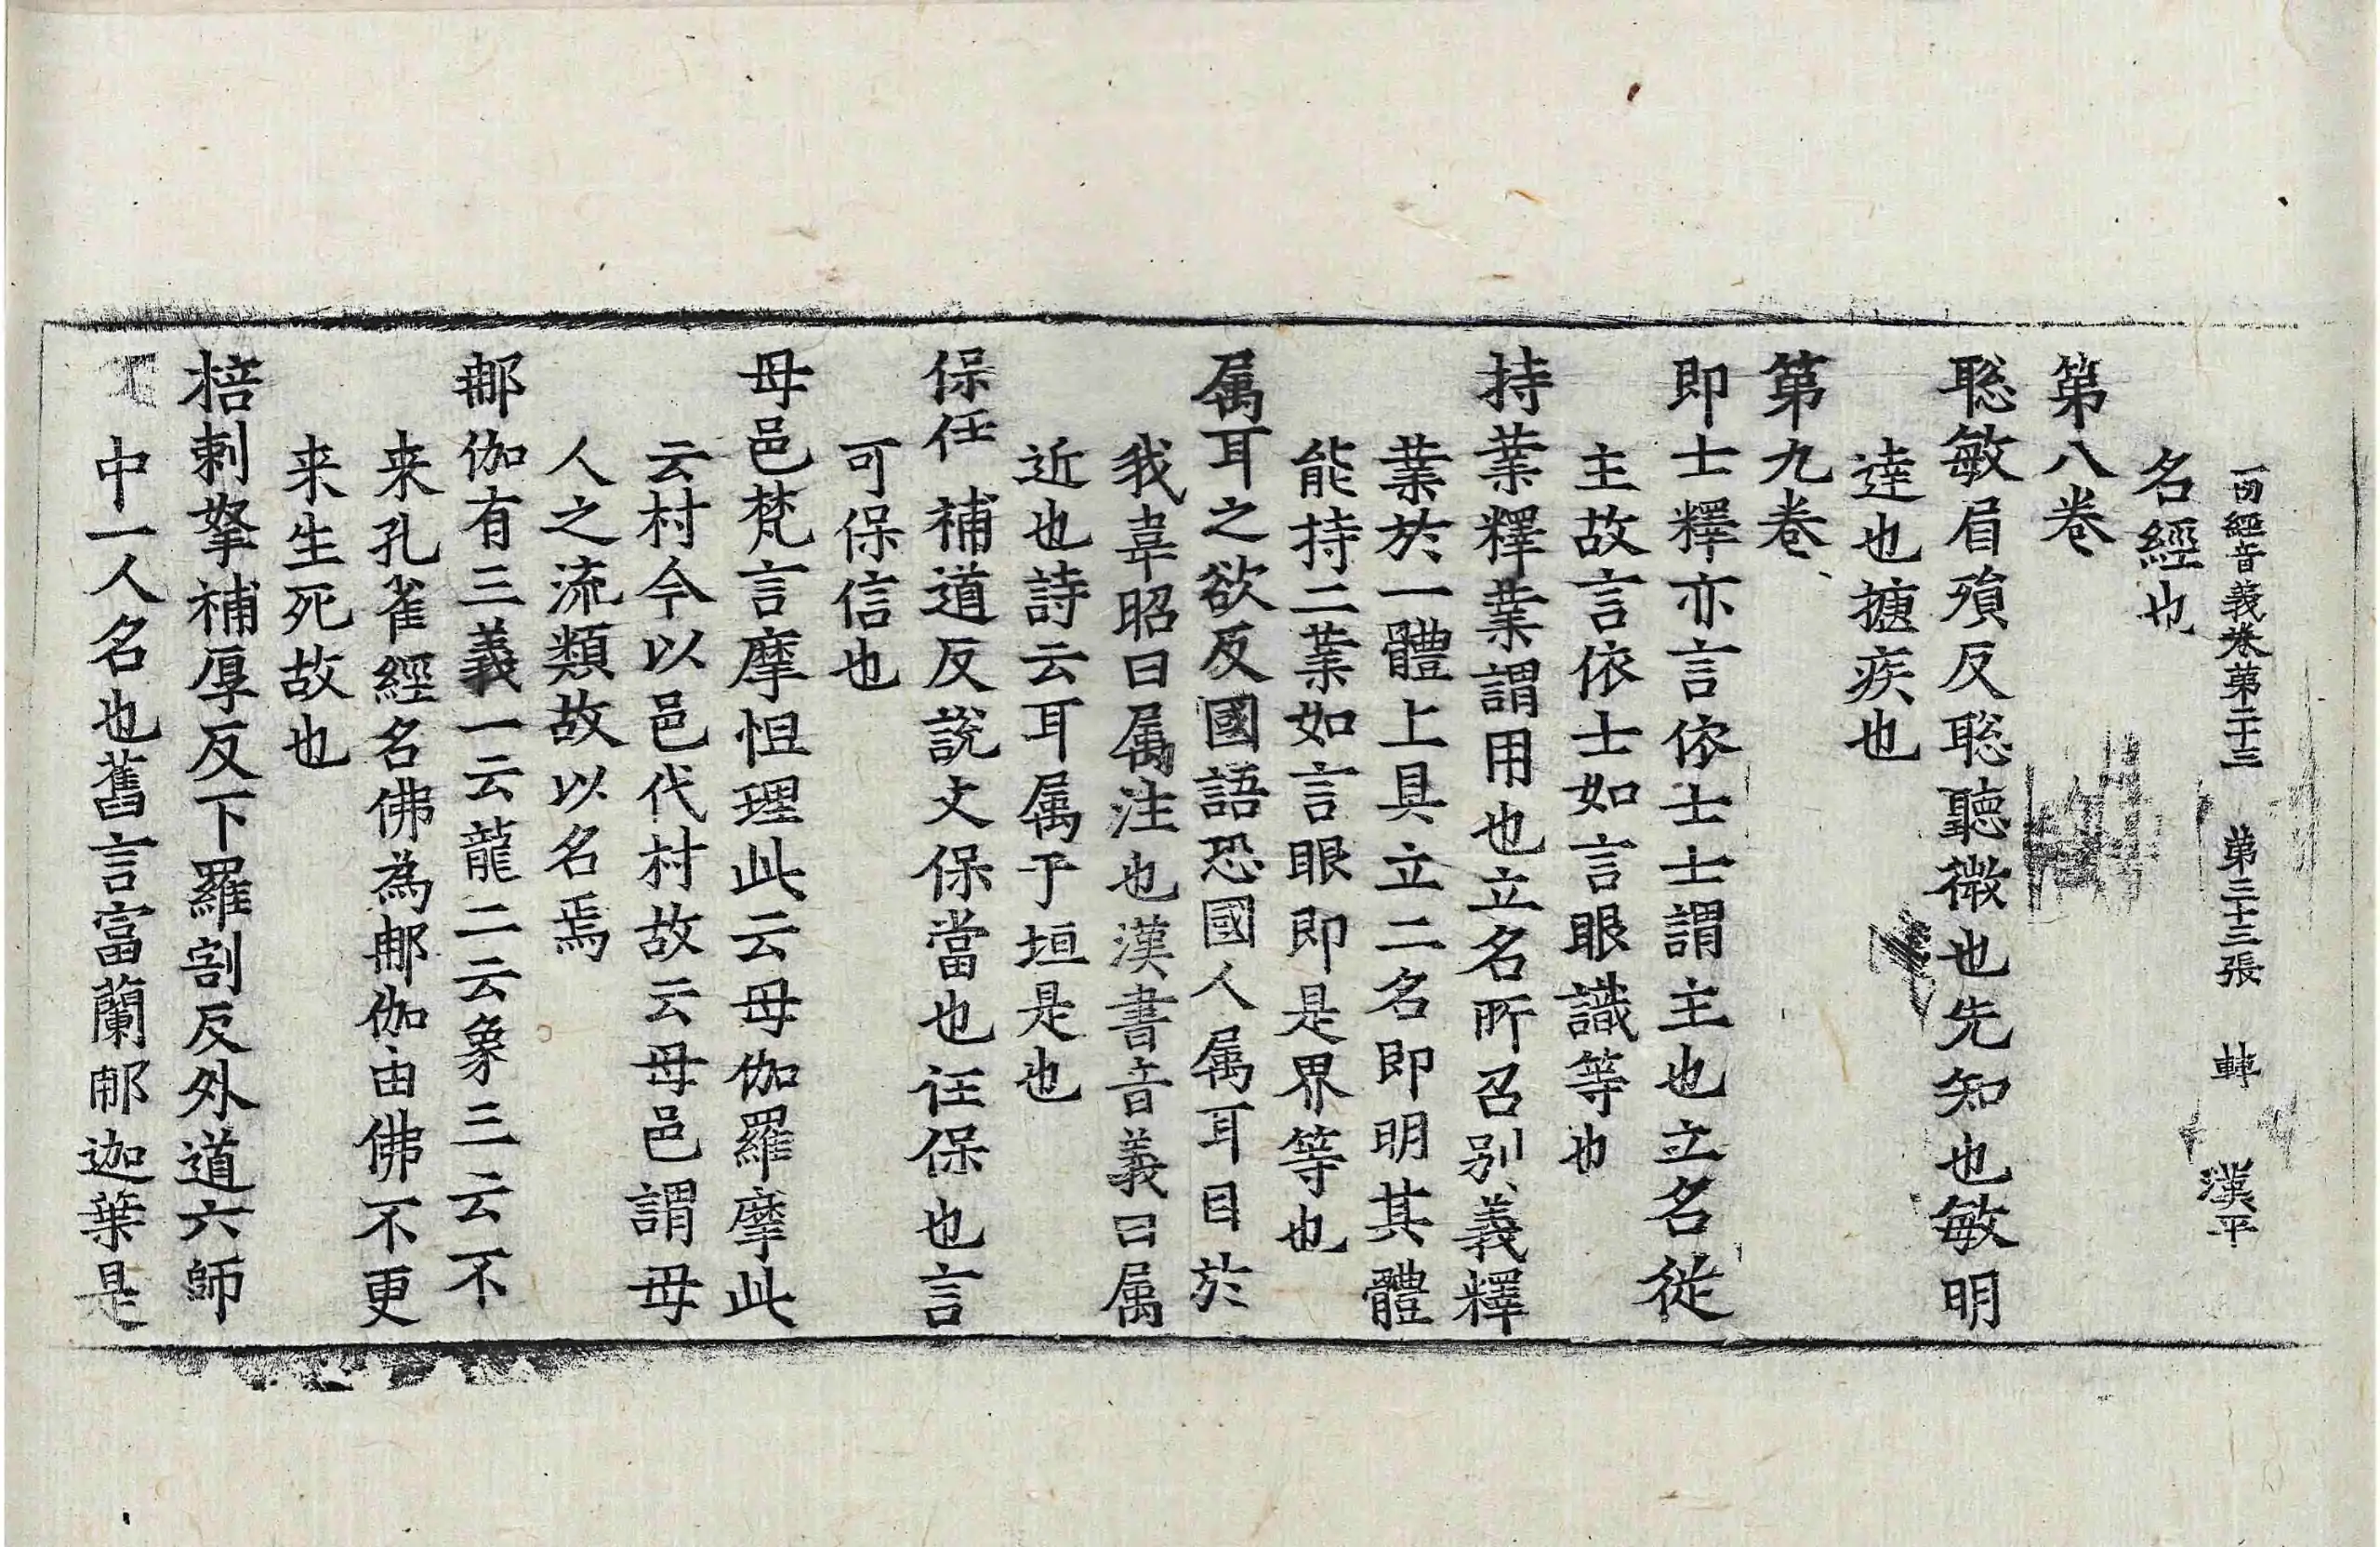 一切經音義卷第二十三 第三十三張 轉 漢平
名經也
第八卷
聡敏眉殞反聡聽微也先知也敏明
達也摭疾也
第九卷
即士釋亦言依士士謂主也立名從
主故言依士如言眼識等也
持業釋業謂用也立名所召别義釋
業於一體上具立二名即明其體
能持二業如言眼即是界等也
属耳之欲反國語恐國人属耳目於
我韋昭曰属注也漢書音義曰属
近也詩云耳属于垣是也
保任 補道反說文保當也任保也言
可保信也
母邑梵言摩怛理此云母伽羅摩此
云村今以邑代村故云母邑謂母
人之流類故以名焉
那伽有三義一云龍二云象三云不
来孔雀經名佛為那伽由佛不更
来生死故也
棓剌拏補厚反下羅割反外道六師
中一人名也舊言富蘭那迦葉是